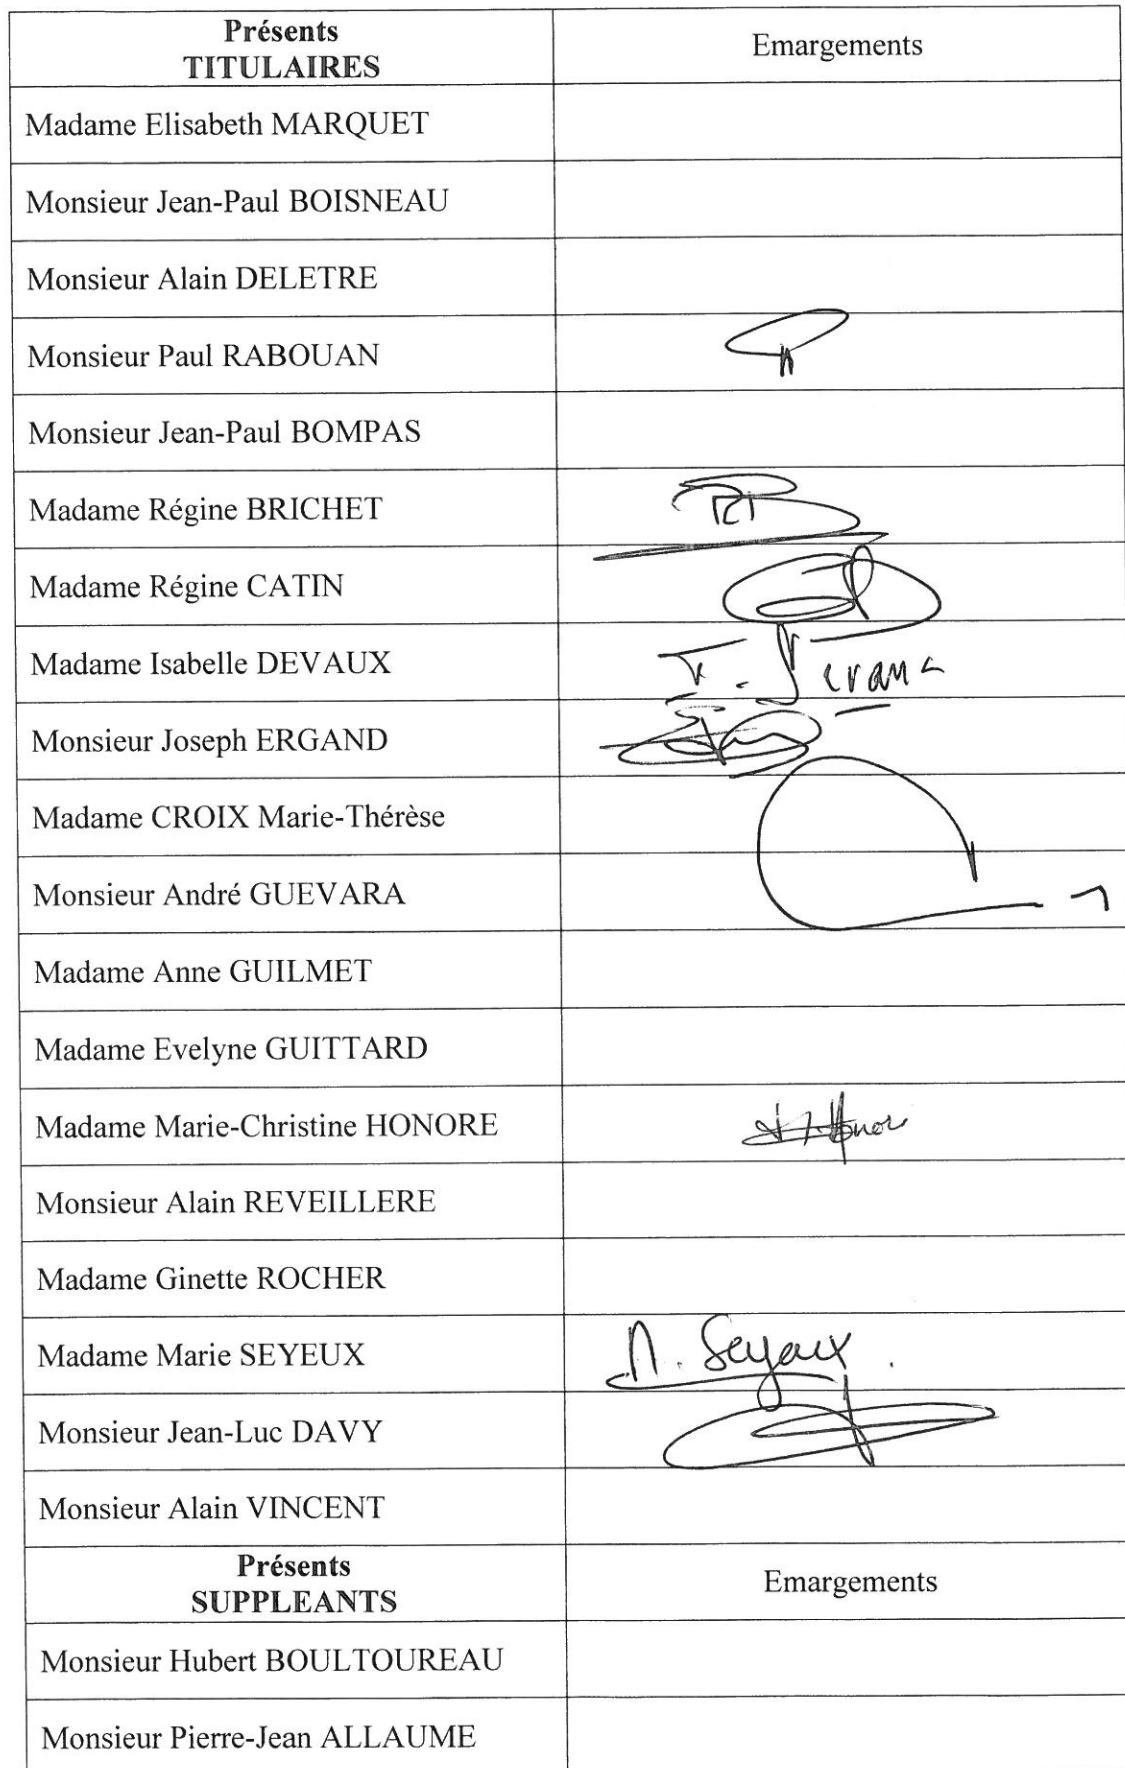 Présents
TITULAIRES
Emargements
Madame Elisabeth MARQUET
Monsieur Jean-Paul BOISNEAU
Monsieur Alain DELETRE
Monsieur Paul RABOUAN
Monsieur Jean-Paul BOMPAS
Madame Régine BRICHET
Madame Régine CATIN
Madame Isabelle DEVAUX
Monsieur Joseph ERGAND
Madame CROIX Marie-Thérèse
Monsieur André GUEVARA
Madame Anne GUILMET
Madame Evelyne GUITTARD
Madame Marie-Christine HONORE
Monsieur Alain REVEILLERE
Madame Ginette ROCHER
Madame Marie SEYEUX
M. Seyeux
Monsieur Jean-Luc DAVY
Monsieur Alain VINCENT
Présents
SUPPLEANTS
Emargements
Monsieur Hubert BOULTOUREAU
Monsieur Pierre-Jean ALLAUME